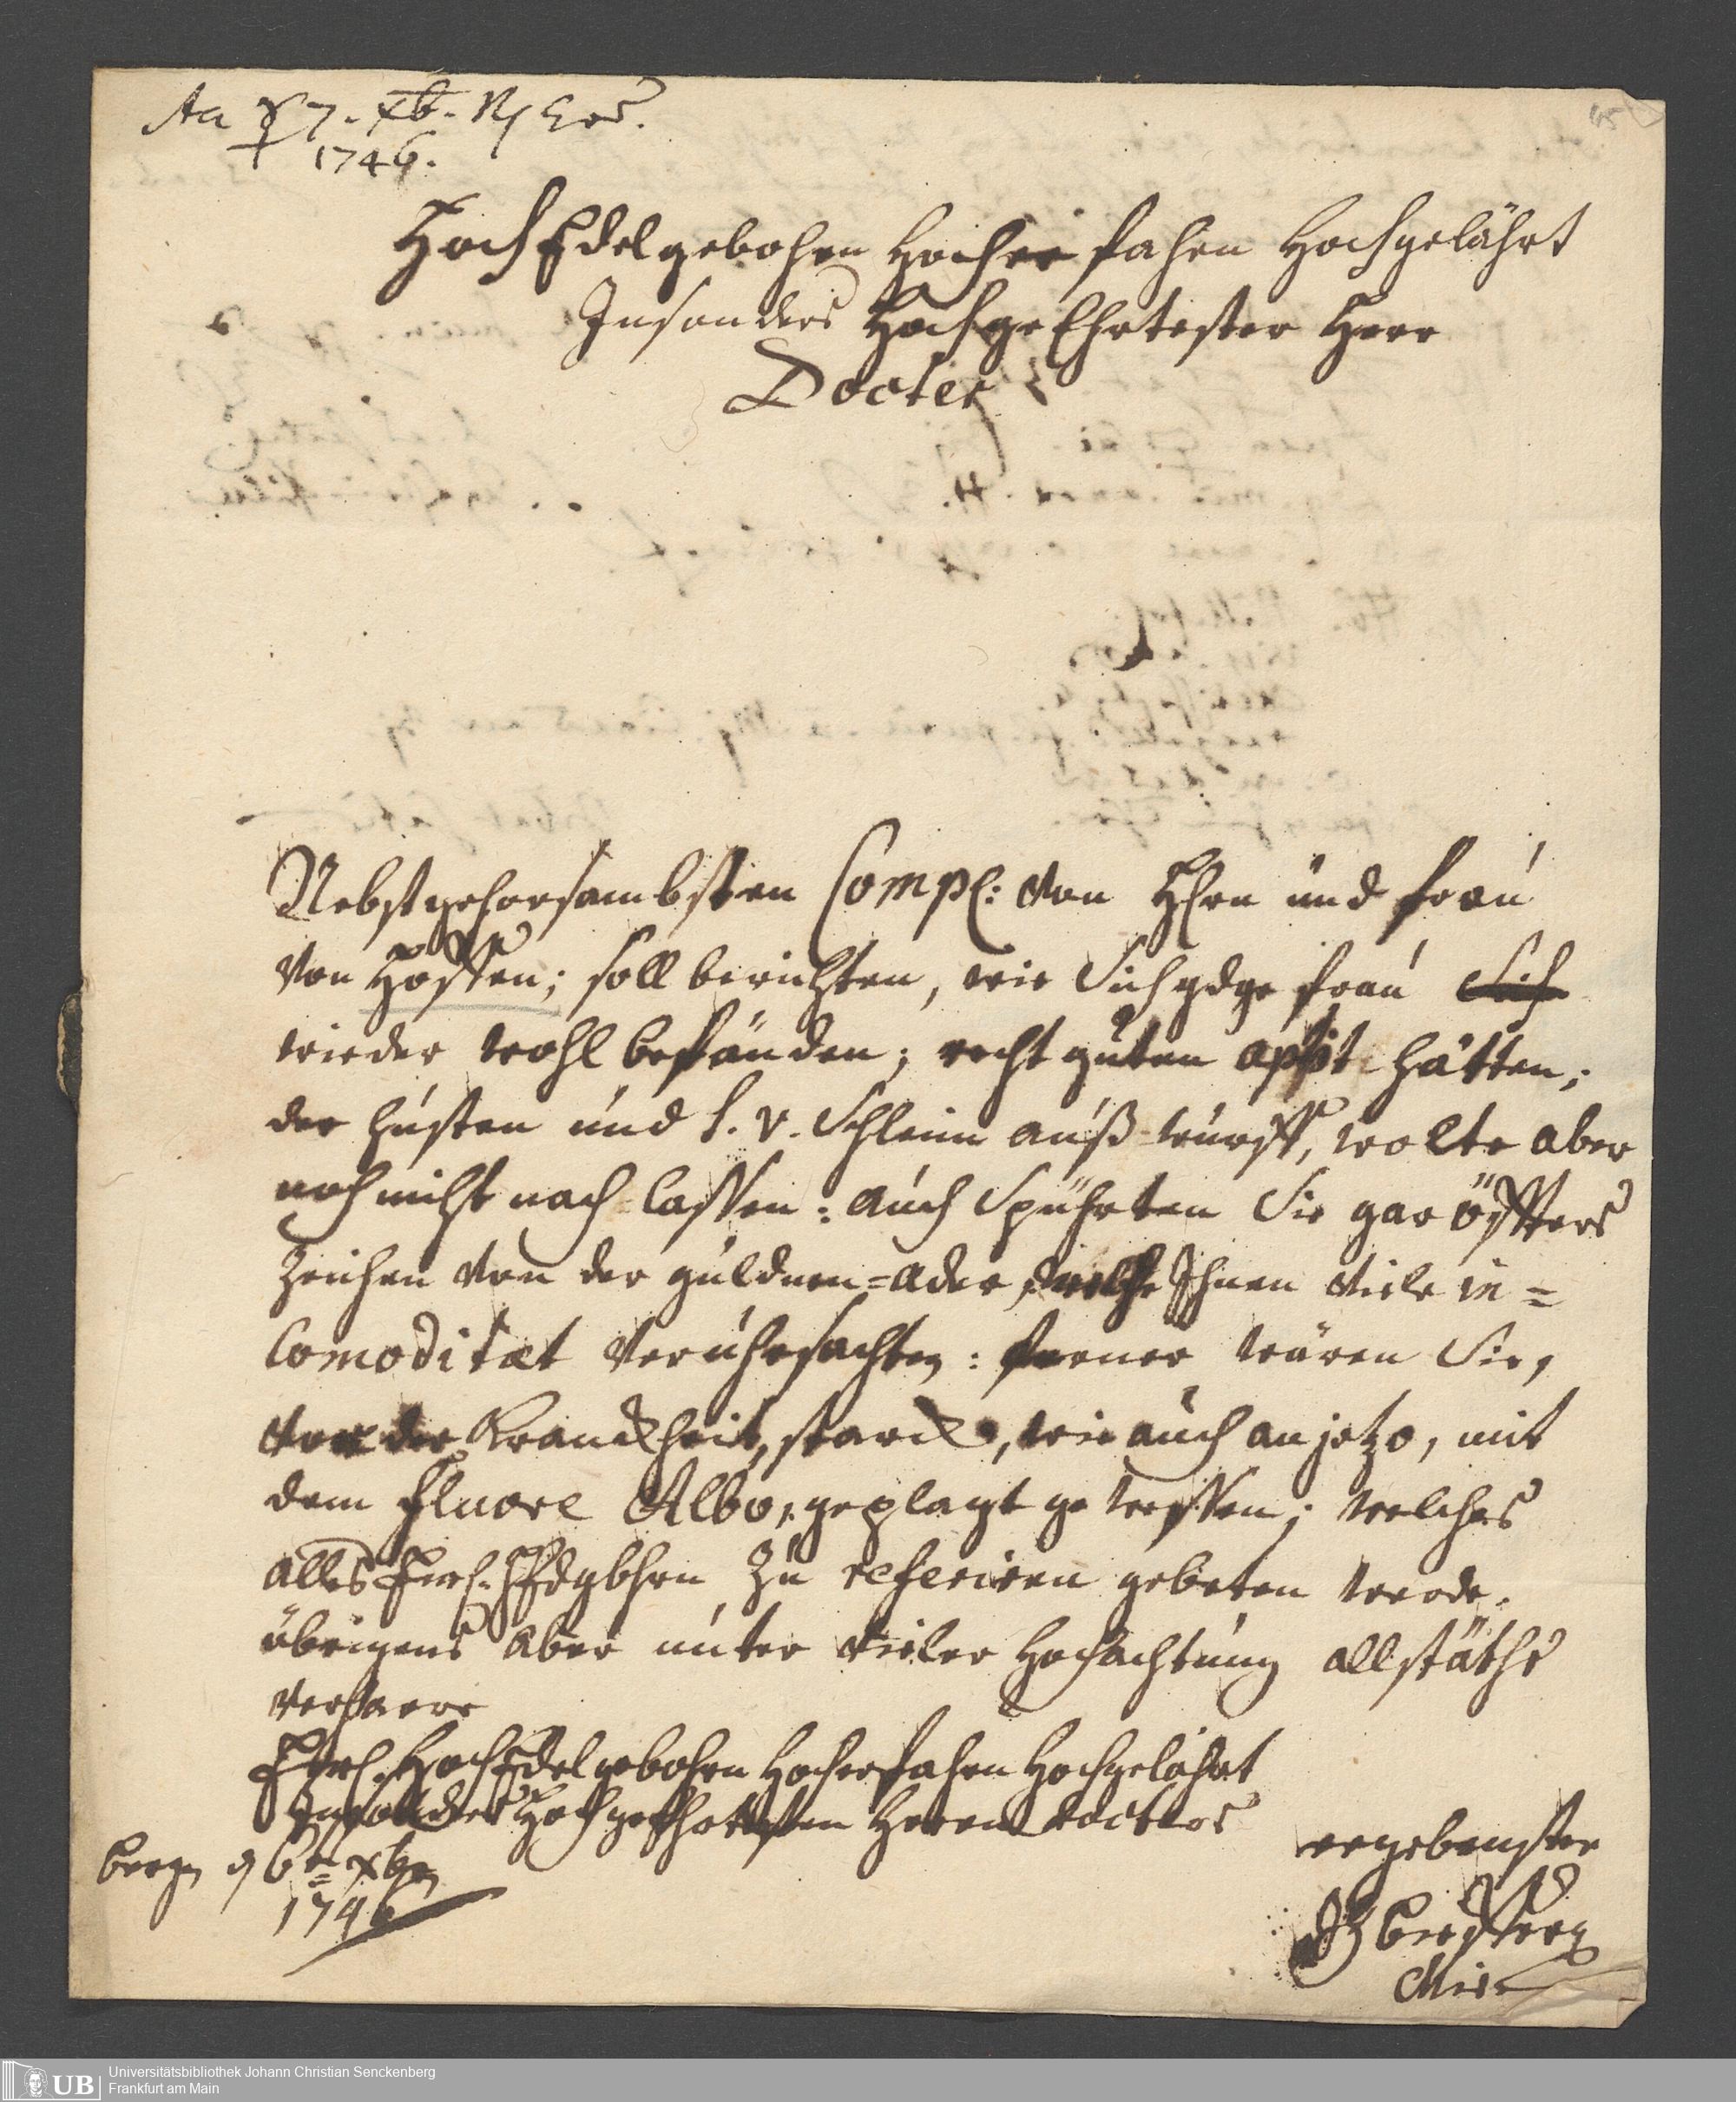 7. xb.
1746.
45
HochEdelgebohren Hocherfahren Hochgelährt
Insonders HochgeEhrtester Herr
Docter
Nebst gehorsambsten Compl: von Hhrn und frau
von Hossen; soll berichten, wie Sich gdge frau
wieder wohl befänden; recht guten appit hätten;
der husten und S. v. Schleim auß-wurff, wolte aber
noch nicht nach lassen: auch Spührten Sie gar öffters
Zeichen von der guldnen=ader, welche Ihnen viele in=
Comoditæt veruhrsachten: ferner wären Sie,
vor der Kranckheit, starck, wie auch an jetzo, mit
dem Fluore Albo, geplagt gewessen; welches
alles Ewl. HEdgbhrn Zu referiren gebeten werde.
übrigens aber unter vieler Hochachtung allstäths
verharre
Ewl. HochEdelgebohrn Hocherfahrn Hochgelährt
Insonders HochgeEhrtesten Herren Docters
bergen d 6t xbr
1746
ergebenster